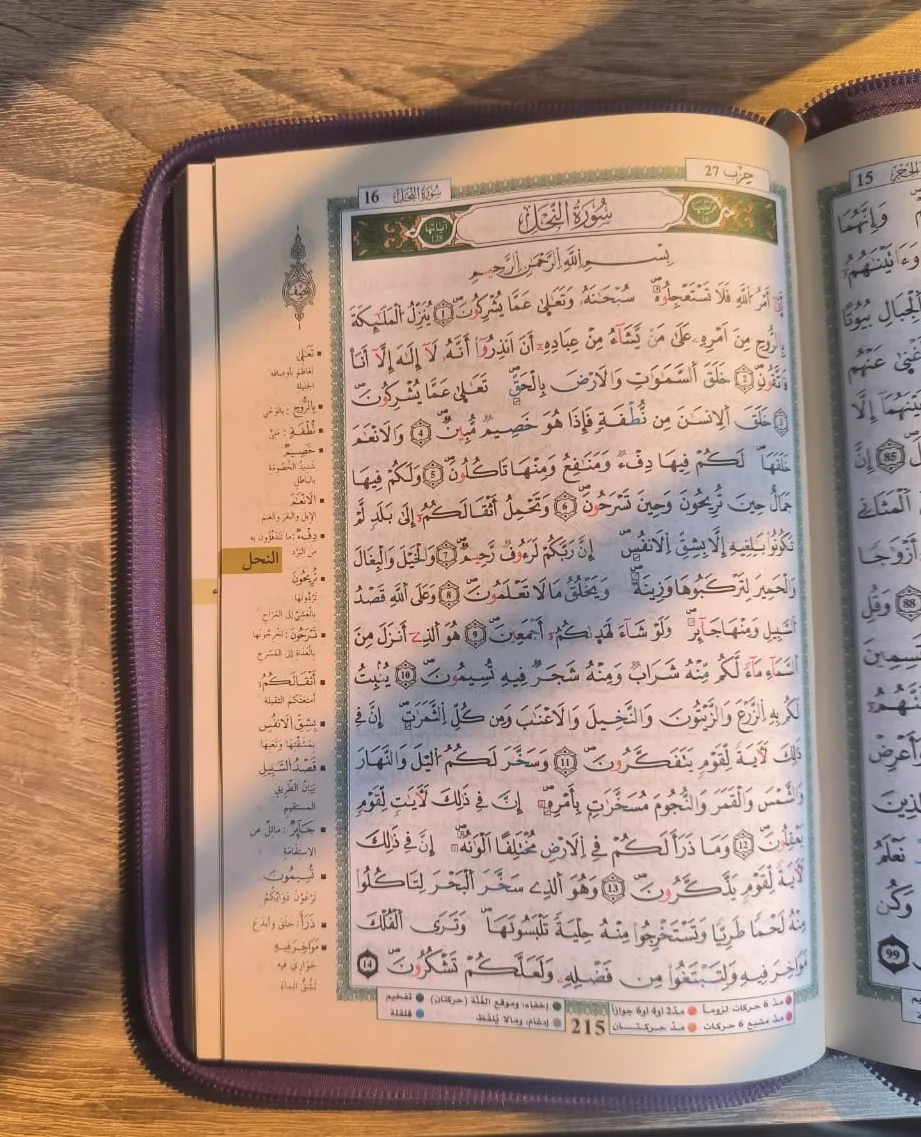 حِزْب 27
16 سُورَةُ النَّحْلِ
سُورَةُ النَّحْلِ
بِسْمِ اللَّهِ الرَّحْمَٰنِ الرَّحِيمِ
أَمْرُ اللَّهِ فَلَا تَسْتَعْجِلُوهُ سُبْحَٰنَهُۥ وَتَعَٰلَىٰ عَمَّا يُشْرِكُونَ 1 يُنَزِّلُ الْمَلَٰٓئِكَةَ
بِالرُّوحِ مِنَ اَمْرِهِۦ عَلَىٰ مَنْ يَّشَآءُ مِنْ عِبَادِهِۦٓ أَنَ اَنذِرُوٓا أَنَّهُۥ لَآ إِلَٰهَ إِلَّآ أَنَا
فَاتَّقُونِ 2 خَلَقَ السَّمَٰوَٰتِ وَالَارْضَ بِالْحَقِّ تَعَٰلَىٰ عَمَّا يُشْرِكُونَ
3 خَلَقَ الِانسَٰنَ مِن نُّطْفَةٍ فَإِذَا هُوَ خَصِيمٌ مُّبِينٌ 4 وَالَانْعَٰمَ
خَلَقَهَا لَكُمْ فِيهَا دِفْءٌ وَمَنَٰفِعُ وَمِنْهَا تَاكُلُونَ 5 وَلَكُمْ فِيهَا
جَمَالٌ حِينَ تُرِيحُونَ وَحِينَ تَسْرَحُونَ 6 وَتَحْمِلُ أَثْقَالَكُمُۥٓ إِلَىٰ بَلَدٍ لَّمْ
تَكُونُوا بَٰلِغِيهِ إِلَّا بِشِقِّ الَانفُسِ إِنَّ رَبَّكُمْ لَرَءُوفٌ رَّحِيمٌ 7 وَالْخَيْلَ وَالْبِغَالَ
وَالْحَمِيرَ لِتَرْكَبُوهَا وَزِينَةً وَيَخْلُقُ مَا لَا تَعْلَمُونَ 8 وَعَلَى اللَّهِ قَصْدُ
السَّبِيلِ وَمِنْهَا جَآئِرٌ وَلَوْ شَآءَ لَهَدَىٰكُمُۥٓ أَجْمَعِينَ 9 هُوَ الَّذِےٓ أَنزَلَ مِنَ
السَّمَآءِ مَآءً لَّكُم مِّنْهُ شَرَابٌ وَمِنْهُ شَجَرٌ فِيهِ تُسِيمُونَ 10 يُنۢبِتُ
لَكُم بِهِ الزَّرْعَ وَالزَّيْتُونَ وَالنَّخِيلَ وَالَاعْنَٰبَ وَمِن كُلِّ الثَّمَرَٰتِ إِنَّ فِے
ذَٰلِكَ لَأٓيَةً لِّقَوْمٍ يَتَفَكَّرُونَ 11 وَسَخَّرَ لَكُمُ الَّيْلَ وَالنَّهَارَ
وَالشَّمْسَ وَالْقَمَرَ وَالنُّجُومَ مُسَخَّرَٰتٍ بِأَمْرِهِۦٓ إِنَّ فِے ذَٰلِكَ لَأٓيَٰتٍ لِّقَوْمٍ
يَعْقِلُونَ 12 وَمَا ذَرَأَ لَكُمْ فِے الَارْضِ مُخْتَلِفًا اَلْوَٰنُهُۥٓ إِنَّ فِے ذَٰلِكَ
لَأٓيَةً لِّقَوْمٍ يَذَّكَّرُونَ 13 وَهُوَ الَّذِے سَخَّرَ الْبَحْرَ لِتَاكُلُوا
مِنْهُ لَحْمًا طَرِيًّا وَتَسْتَخْرِجُوا مِنْهُ حِلْيَةً تَلْبَسُونَهَا وَتَرَى الْفُلْكَ
مَوَاخِرَ فِيهِ وَلِتَبْتَغُوا مِن فَضْلِهِۦ وَلَعَلَّكُمْ تَشْكُرُونَ 14
تَعَٰلَىٰ
تعاظم بأوصافه
الجليلة
بِالرُّوحِ : بالوحي
نُطْفَةٍ : مَنِيّ
خَصِيمٌ
شديدُ الخُصُومة
بالباطل
الَانْعَٰمَ
الإبل والبقر والغنم
دِفْءٌ : ما تتدفّؤون به
من البَرْد
تُرِيحُونَ
تردُّونها
بالعشيّ إلى المَرَاح
تَسْرَحُونَ : تخرجونها
بالغداة إلى المَسْرَح
أَثْقَالَكُمُۥ
أمتعتكم الثقيلة
بِشِقِّ الَانفُسِ
بمشقّتها وتعبها
قَصْدُ السَّبِيلِ
بيان الطريق
المستقيم
جَآئِرٌ : مائلٌ عن
الاستقامة
تُسِيمُونَ
ترعَوْن دوابّكم
ذَرَأَ : خلق وأبدع
مَوَاخِرَ فِيهِ
جواري فيه
تشُقُّ الماء
النحل
مدّ 6 حركات لزوماً مدّ 2 أو 4 أو 6 جوازاً إخفاء، ومواقع الغُنَّة (حركتان) تفخيم
مدّ مشبع 6 حركات مدّ حركتان إدغام، وما لا يُلفَظ قلقلة
215
15
وَإِنَّهُمَا
الْجِبَالِ بُيُوتًا
عَنْهُم
إِلَّا
85 إِنَّ
الْمَثَانِے
أَزْوَٰجًا
88 وَقُلِ
الَّذِينَ
نَعْلَمُ
وَكُن
99